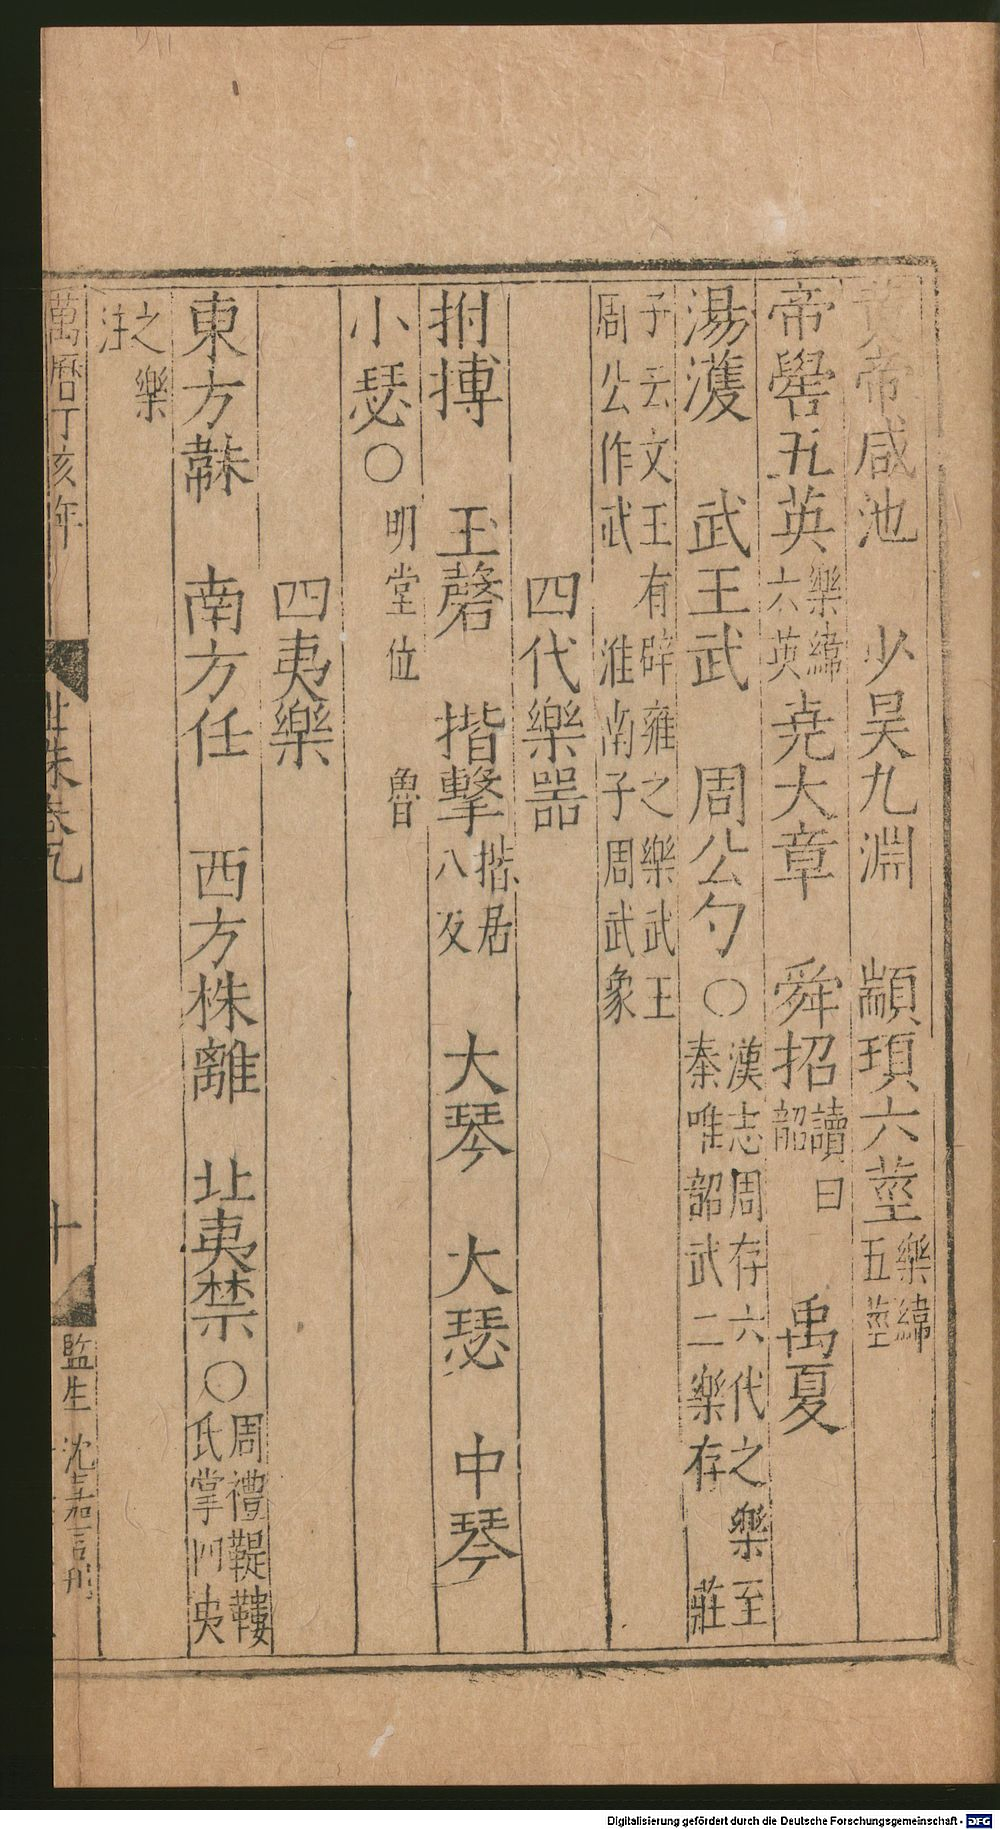 黄帝咸池　少昊九淵　顓頊六莖樂緯五莖
帝嚳五英樂緯六英堯大章　舜招讀曰韶　禹夏
湯濩　武王武　周公勺○漢志周存六代之樂至秦唯韶武二樂存　莊
子云文王有辟雍之樂武王周公作武　淮南子周武象
四代樂噐
拊搏　玉磬　揩擊揩居八反　大琴　大瑟　中琴
小瑟○明堂位　魯
四夷樂
東方韎　南方任　西方株離　北夷禁○周禮鞮鞻氏掌四夷
之樂注
萬曆丁亥年
卷九
十
監生　沈
Digitalisierung gefördert durch die Deutsche Forschungsgemeinschaft - DFG